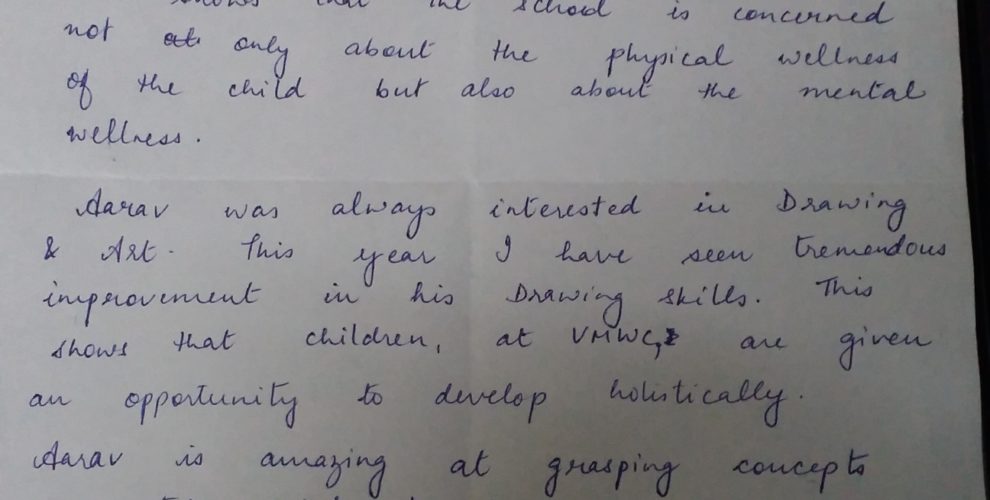 shows that the school is concerned
not only about the physical wellness
of the child but also about the mental
wellness.
Aarav was always interested in Drawing
& Art. This year I have seen tremendous
improvement in his Drawing skills. This
shows that children, at VMWC, are given
an opportunity to develop holistically.
Aarav is amazing at grasping concepts